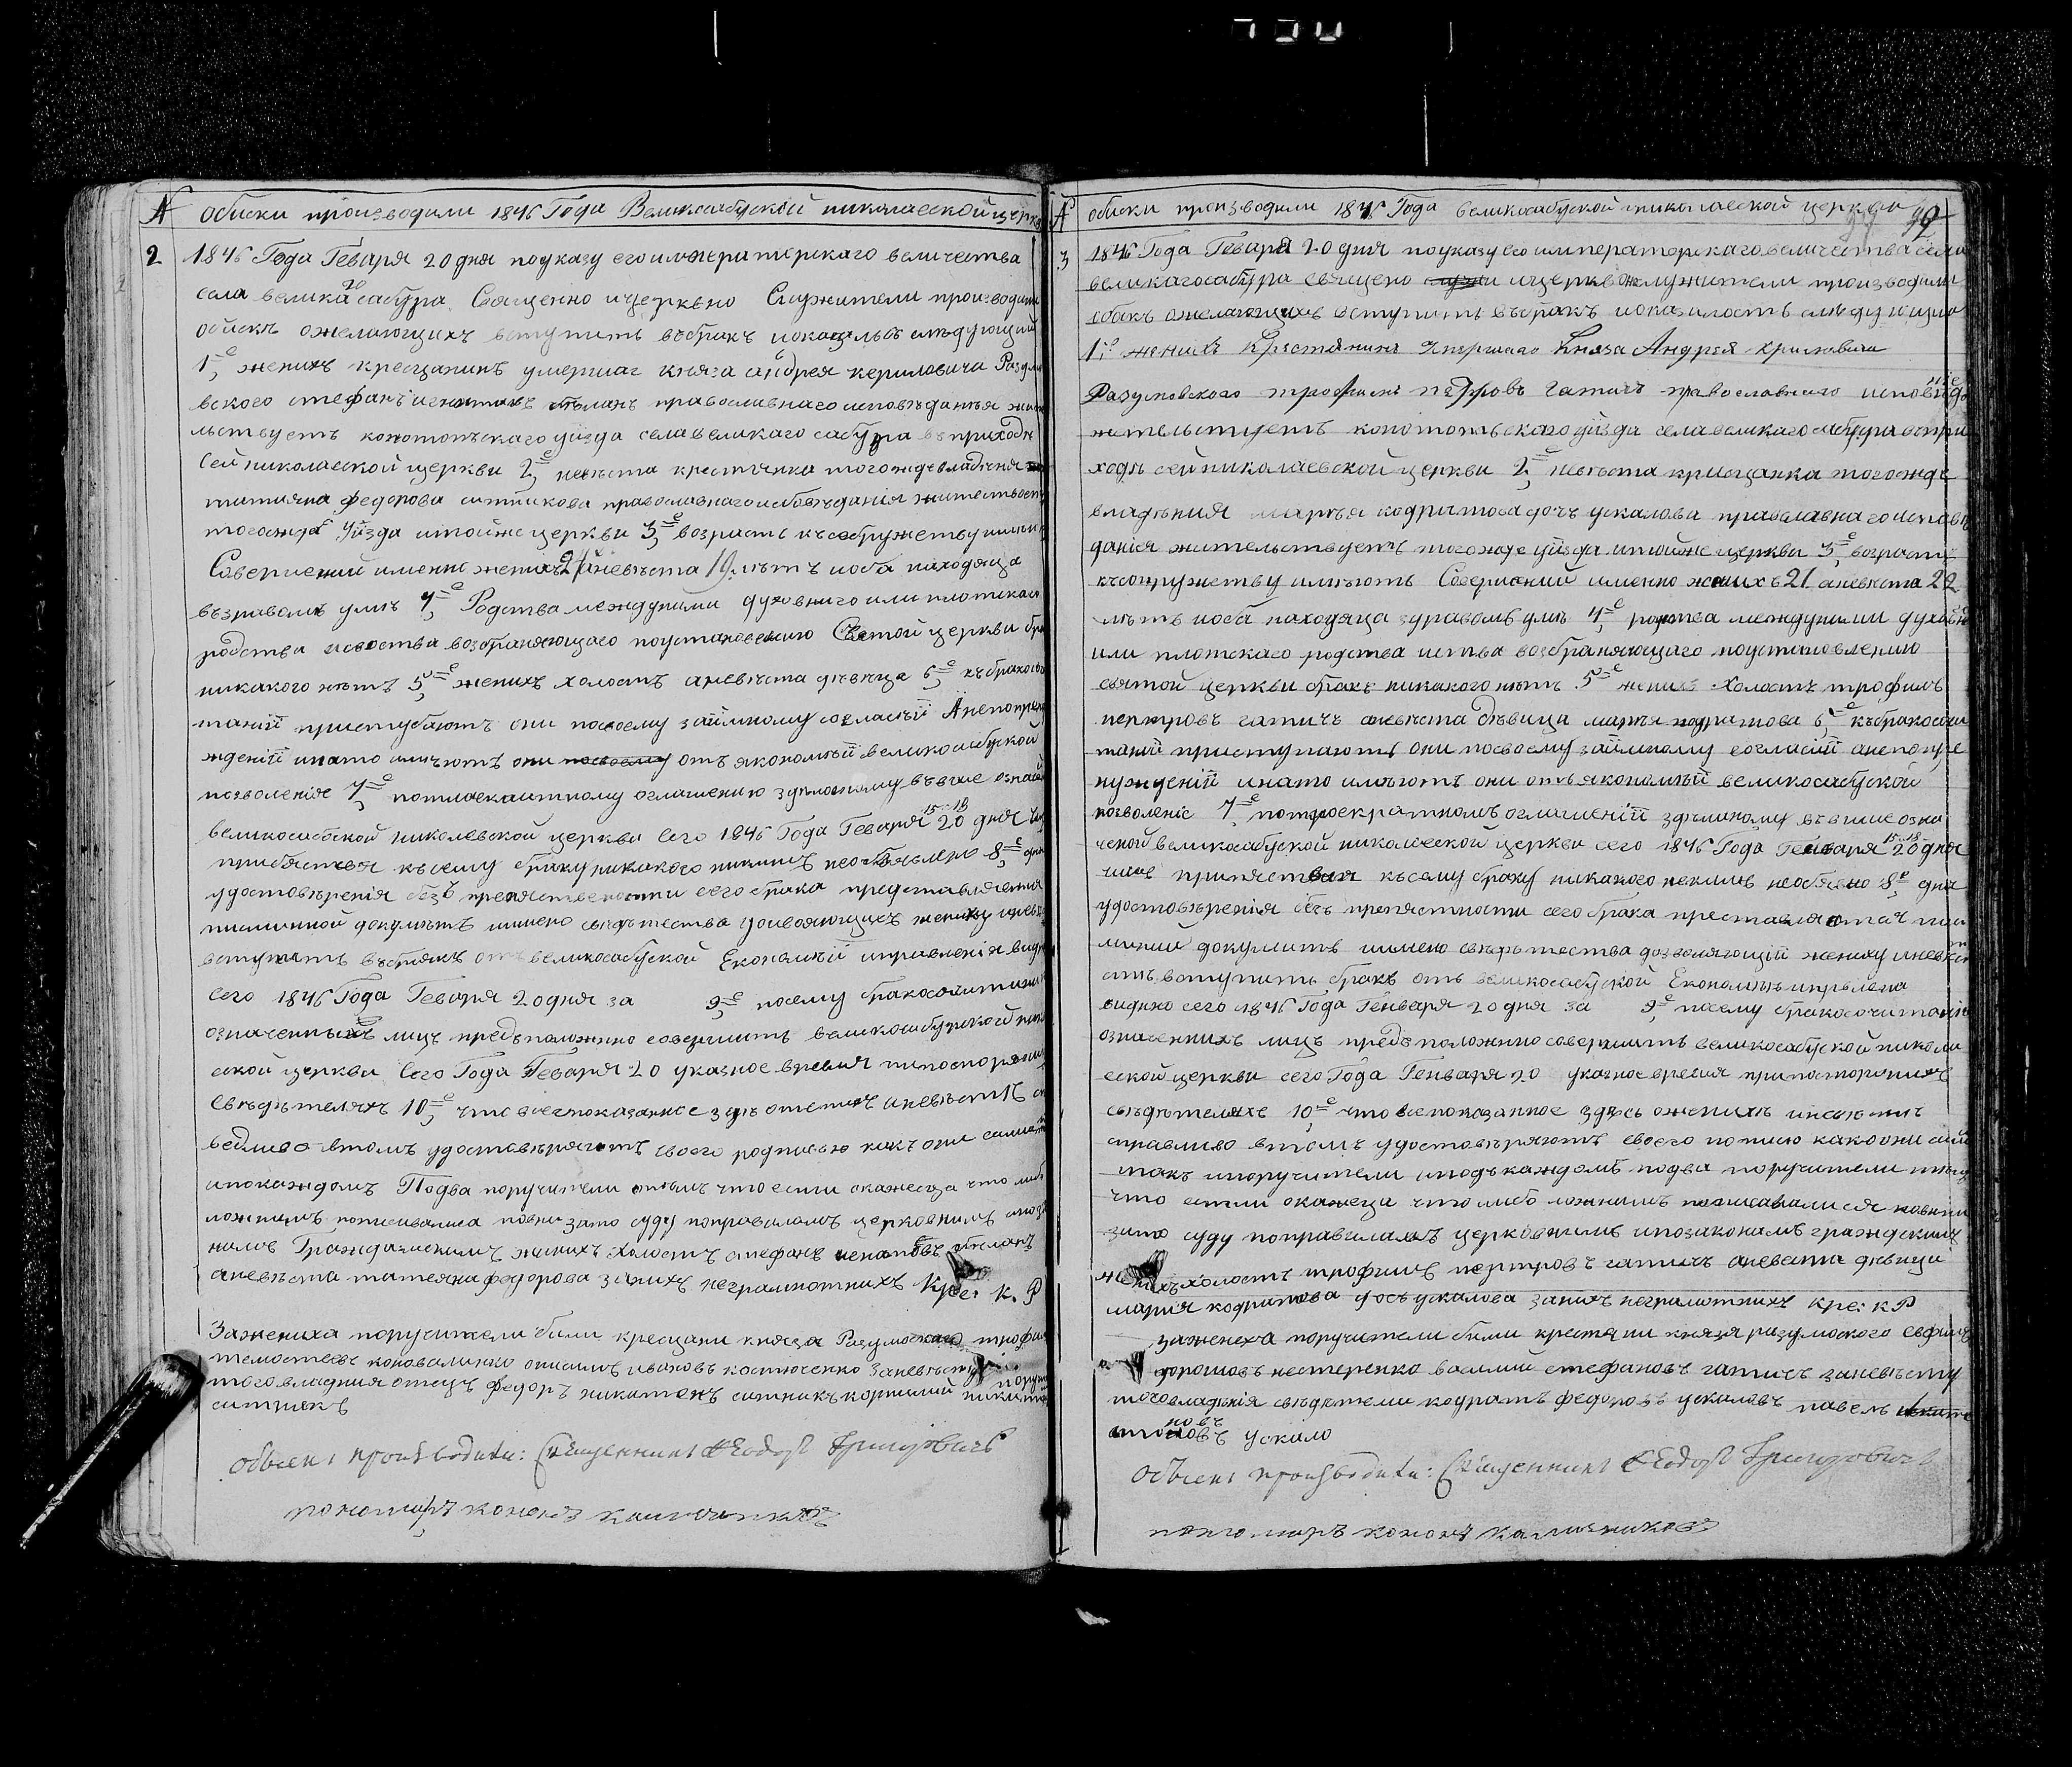 № обиски производили 1846 Года Великосабуской николаеской церкв
2 1846 Года Геваря 20 дня поуказу его императерскаго величества
села великаго сабура Священно ицерквно Служители производили
обискъ ожелающихъ вступить вбракъ иоказалось слѣдующий
1,е женихъ кресцанинъ умершаг князя андрея кериловича Разум
вского стефанъ православнаго исповѣданья жи
льствуетъ конотопскаго уѣзда села великаго сабура въприходѣ
сей николаеской церкви 2,е невѣста крестянка тогожде владѣния
татияна федорова ситникова православнаго исповѣданія жительст
тогожде Уѣзда итойже церкви 3,е возрастъ къ собружеству имѣют
Совершений именно женихъ 21 аневѣста 19 лѣтъ иоба находяца
въздравомъ умѣ 4,е Родства междуними духовнаго или плотскаг
родства исвоства возбраняющаго поустановению Светой церкви бра
никакого нѣтъ 5,е женихъ холостъ аневѣста дѣвица 6,е къбракосо
таній приступаютъ они посвоему займному согласій Анепопри
жденій инато имѣютъ они посвоему отъ якономъій великосабуской
позволеніе 7,е оглашению здѣланому въвише означ
великосабской николаевской церкви сего 1846 Года Геваря 15 18 20 дня
къ сему браку никакого никимъ необявлено 8,е для
удостовѣренія безъ препяственности сего брака представляется
писминной докумѣтъ имено свѣдѣтества женику иневѣ
вступить въбракъ отъ великосабуской Економъій иправленія видн
сего 1846 Года Геваря 20 дня за 9,е посему бракосочитание
означенныхъ лицъ предъположино совершить великосабурской ник
еской церкви Сего Года Геваря 20 указное время припосторони
свѣдѣтеляхъ 10,е что все показанное здѣ отених иневѣстѣ сп
ведливо втомъ удостовѣряютъ своего родписью какъ они сами
ипокаждомъ Подва поручители отѣмъ что если окажеца что либ
ложнимъ пописивалися повни зато суду поправиламъ церковнимъ ипоз
номъ Гражданскимъ женихъ холостъ стефанъ игнатовъ
аневѣста татеяна федорова занихъ неграмотнихъ Кре: К. Р
Зажениха поручители били кресцани князя Разумоского трофим
темостеевъ коноваленко онисимъ ивановъ костюченко Заневѣсту поруч
тоговладния отецъ федоръ никитонъ ситникъ корнилий никито
ситникъ
обыскъ производили: Священникъ Ѳеодоръ Григоровичъ
пономаръ кононъ каличенковъ
№ обиски производили 1846 Года великосабуской николаеской церкви 99
3 1846 Года Геваря 20 дня поуказу его императорскаго величества села
великаго сабура священо ицеркво служители производили
обискъ ожелающихъ вступить въбракъ иоказалось слѣдующио
1,е женихъ Крестянинъ Умершаго Князя Андрея Криловича
Разумовского трофимъ петровъ гатичъ православнаго исповѣда ние
жительствуетъ конотопского уѣзда села великаго сабура въпри
ходѣ сей николаевской церкви 2,е невѣста крисцанка тогожде
владѣния марѣя кодратова дочъ ускалова праославнаго исповѣ
данія жительствуетъ тогожде уѣзда итойже церкви 3,е возрастъ
къ сопружеству имѣютъ Совершений именно женихъ 21 аневѣста 22
лѣтъ иоба находяца здравомъ умѣ 4,е родства междуними духовн
или плотскаго родства иства возбраняющаго поустановлению
святой церкви бракъ никакого нѣтъ 5,е женихъ Холостъ трофимъ
пертровъ гатичъ аневѣста дѣвица марѣя кодратова 6,е къбракосочи
таній приступаютъ они посвоему займному согласій анепопре
нужденій инато имѣютъ они отъ якономъій великосабуской
позволеніе 7,е потроекратномъ оглашеній здѣланому въвише озна
ченой великосабуской николаеской церкви сего 1846 Года Генваря 15 18 20 дня
числ припяствия къ сему браку никакого некимъ необявлено 8,е для
удостовѣренія безъ препятности сего брака преставляются пис
миний докумитъ имено свѣдѣтества дозволяющій жениху иневѣс
стѣ вступить бракъ отъ великосабуской Економъѣ иправлена
виднно сего 1846 Года Генваря 20 дня за 9,е посему бракосочитанію
означенихъ лицъ предъположино совершитъ великосабуской никола
еской церкви сего Года Генваря 20 указное время припосторонихъ
свѣдѣтеляхъ 10,е что все показанное здѣсь оженихѣ иневѣстѣ
справливо втомъ удостовѣряютъ своего пописю како они сами
такъ ипоручители иподъкаждомъ подва поручители отѣмъ
что если окажеца что либо ложнимъ пописавалися повни
зато суду поправиламъ церковнимъ ипозакономъ граждскимъ
женихъ холостъ трофимъ пертровъ гатичъ аневеста дѣвица
мария кодратова досъ ускалова занихъ неграмотнихъ Кре: к Р
зажениха поручители били крестяни князя разумоского евфимъ
нестеренко василий стефановъ гатичъ заневѣсту
тоговладѣнія свѣдѣтели кодратъ федоровъ ускаловъ павелъ
новъ ускало
обыскъ производили: Священникъ Ѳеодоръ Григоровичъ
пономаръ кононъ каличенковъ